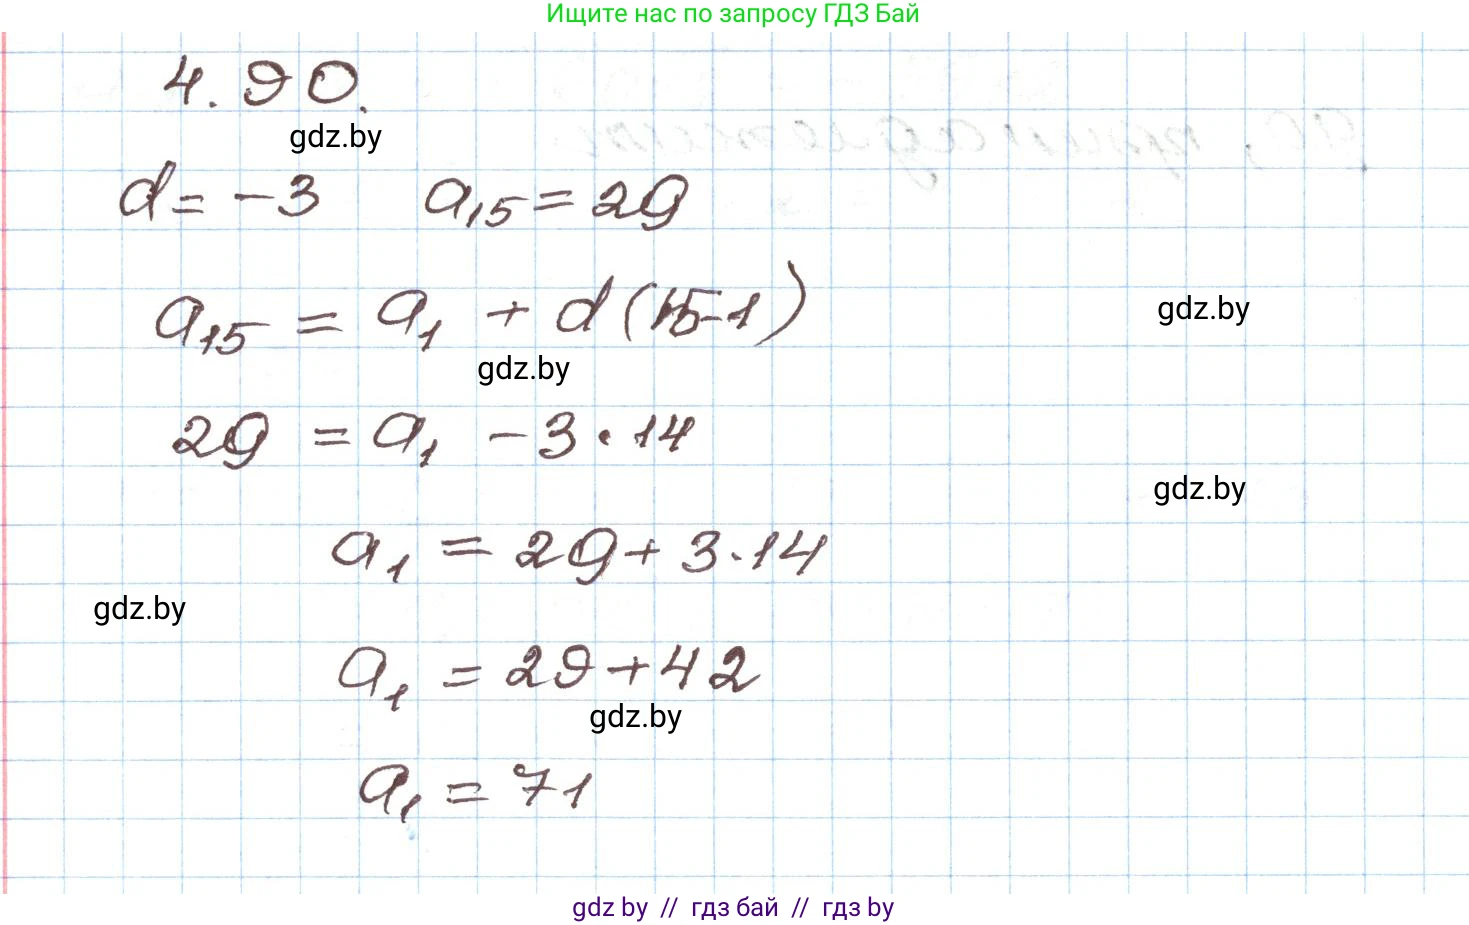 Ищите нас по запросу ГДЗ Бай
4.90.
gdz.by
d = -3 a₁₅ = 29
a₁₅ = a₁ + d(15-1)
gdz.by
gdz.by
29 = a₁ - 3·14
gdz.by
a₁ = 29 + 3·14
gdz.by
a₁ = 29 + 42
gdz.by
a₁ = 71
gdz by // гдз бай // гдз by